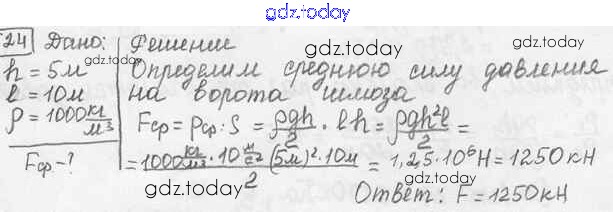 gdz.today
524 Дано:
h = 5м
l = 10м
ρ = 1000 кг/м³
Fср - ?
Решение
gdz.today
Определим среднюю силу давления
на ворота шлюза
gdz.today
Fср = pср · S = ρgh/2 · lh = ρgh²l/2 =
= 1000 кг/м³ · 10 м/с² (5м)² · 10м / 2 = 1,25 · 10⁶ Н = 1250 кН
gdz.today
gdz.today
Ответ: F = 1250 кН